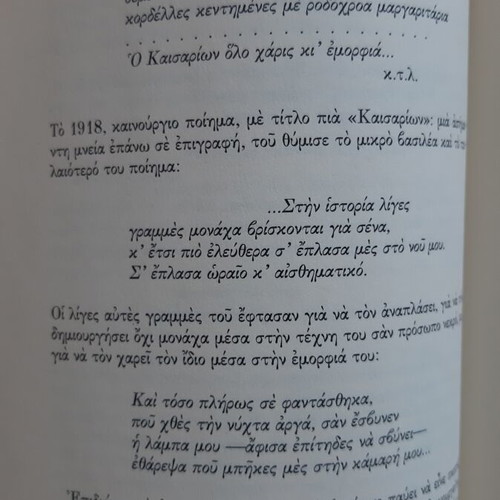 κορδέλλες κεντημένες μὲ ροδόχροα μαργαριτάρια
. . . . . . . . . . . . . . . . . . . . . . . .
Ὁ Καισαρίων ὅλο χάρις κι' ἐμορφιά...
κ.τ.λ.
Τὸ 1918, καινούργιο ποίημα, μὲ τίτλο πιὰ «Καισαρίων»: μιὰ
ντη μνεία ἐπάνω σὲ ἐπιγραφή, τοῦ θύμισε τὸ μικρὸ βασιλέα καὶ τὸ
λαιότερό του ποίημα:
...Στὴν ἱστορία λίγες
γραμμὲς μονάχα βρίσκονται γιὰ σένα,
κ' ἔτσι πιὸ ἐλεύθερα σ' ἔπλασα μὲς στὸ νοῦ μου.
Σ' ἔπλασα ὡραῖο κ' αἰσθηματικό.
Οἱ λίγες αὐτὲς γραμμὲς τοῦ ἔφτασαν γιὰ νὰ τὸν ἀναπλάσει, γιὰ
δημιουργήσει ὄχι μονάχα μέσα στὴν τέχνη του σὰν πρόσωπο νεκρό,
γιὰ νὰ τὸν χαρεῖ τὸν ἴδιο μέσα στὴν ἐμορφιά του:
Καὶ τόσο πλήρως σὲ φαντάσθηκα,
ποῦ χθὲς τὴν νύχτα ἀργά, σὰν ἔσβυνεν
ἡ λάμπα μου —ἄφισα ἐπίτηδες νὰ σβύνει—
ἐθάρεψα ποῦ μπῆκες μὲς στὴν κάμαρή μου...